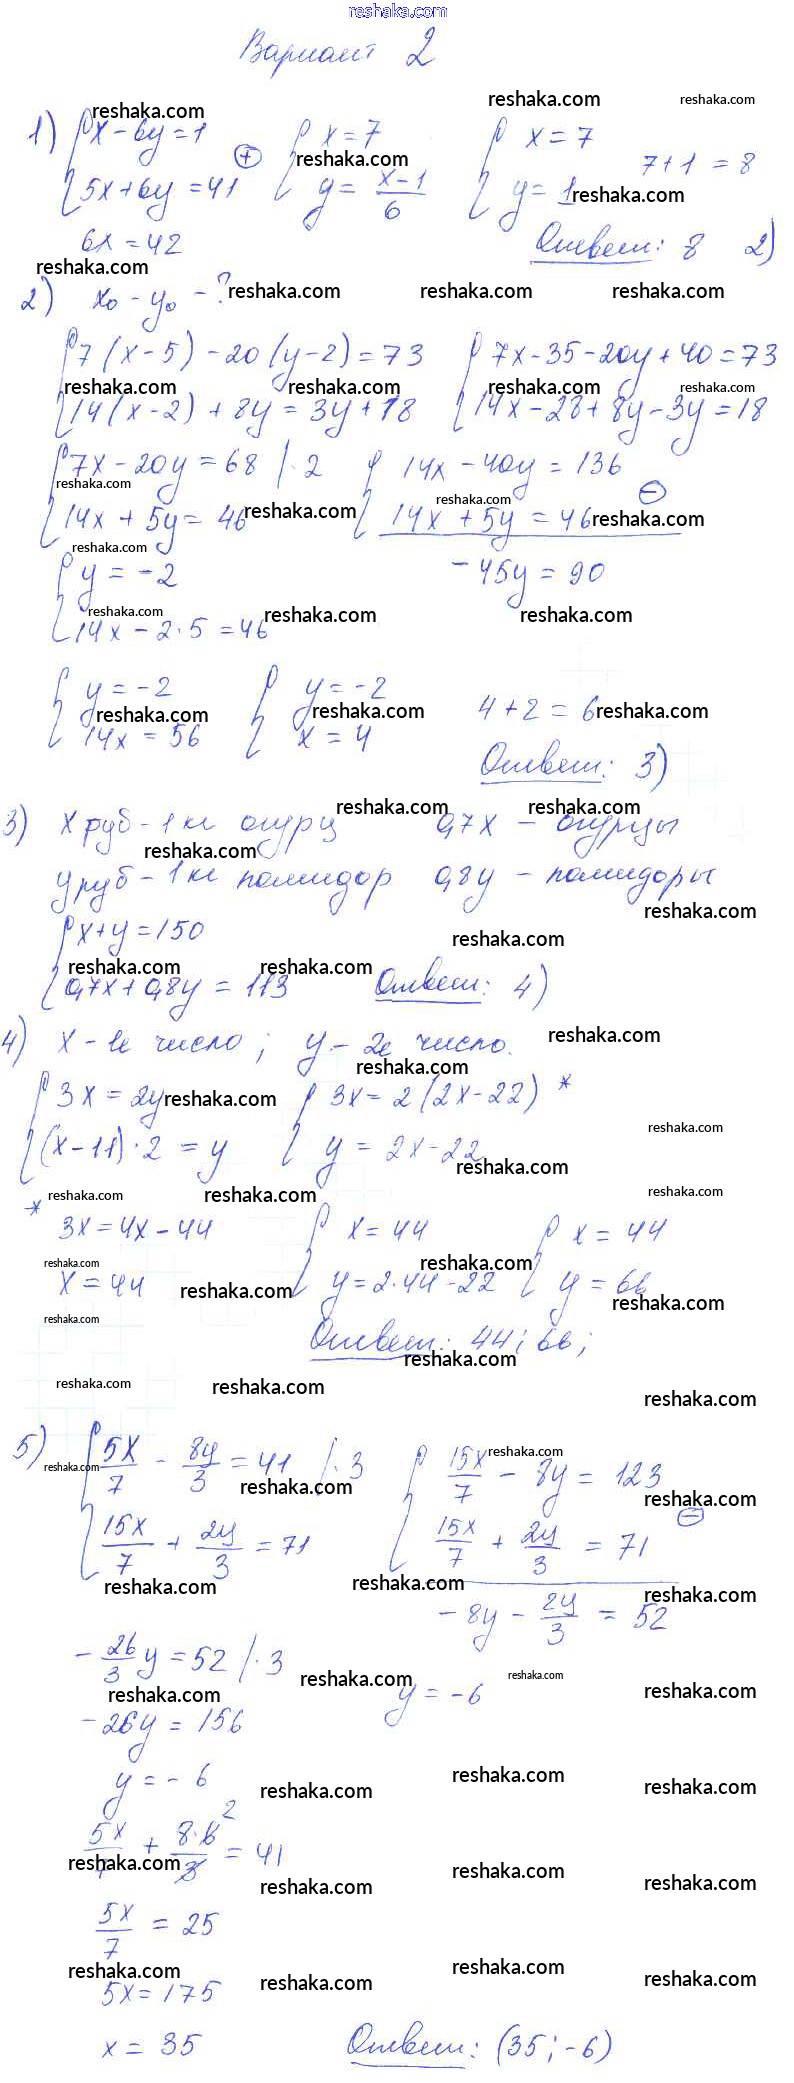 reshaka.com
Вариант 2
1) { x - 6y = 1
5x + 6y = 41 (+)
{ x = 7
y = (x - 1)/6
{ x = 7
y = 1
7 + 1 = 8
6x = 42
Ответ: 8 2)
2) x₀ - y₀ - ?
{ 7(x - 5) - 20(y - 2) = 73
14(x - 2) + 8y = 3y + 18
{ 7x - 35 - 20y + 40 = 73
14x - 28 + 8y - 3y = 18
{ 7x - 20y = 68 |·2
14x + 5y = 46
{ 14x - 40y = 136
14x + 5y = 46 (-)
-45y = 90
{ y = -2
14x - 2·5 = 46
{ y = -2
14x = 56
{ y = -2
x = 4
4 + 2 = 6
Ответ: 3)
3) x руб - 1 кг огурц 0,7x - огурцы
y руб - 1 кг помидор 0,8y - помидоры
{ x + y = 150
0,7x + 0,8y = 113
Ответ: 4)
4) x - 1е число; y - 2е число.
{ 3x = 2y
(x - 11)·2 = y
{ 3x = 2(2x - 22) *
y = 2x - 22
* 3x = 4x - 44
x = 44
{ x = 44
y = 2·44 - 22
{ x = 44
y = 66
Ответ: 44; 66;
5) { 5x/7 - 8y/3 = 41 |·3
15x/7 + 2y/3 = 71
{ 15x/7 - 8y = 123
15x/7 + 2y/3 = 71 (-)
-8y - 2y/3 = 52
-26/3 y = 52 |·3
y = -6
-26y = 156
y = -6
5x/7 + 8·6/3 = 41
2
5x/7 = 25
5x = 175
x = 35
Ответ: (35; -6)